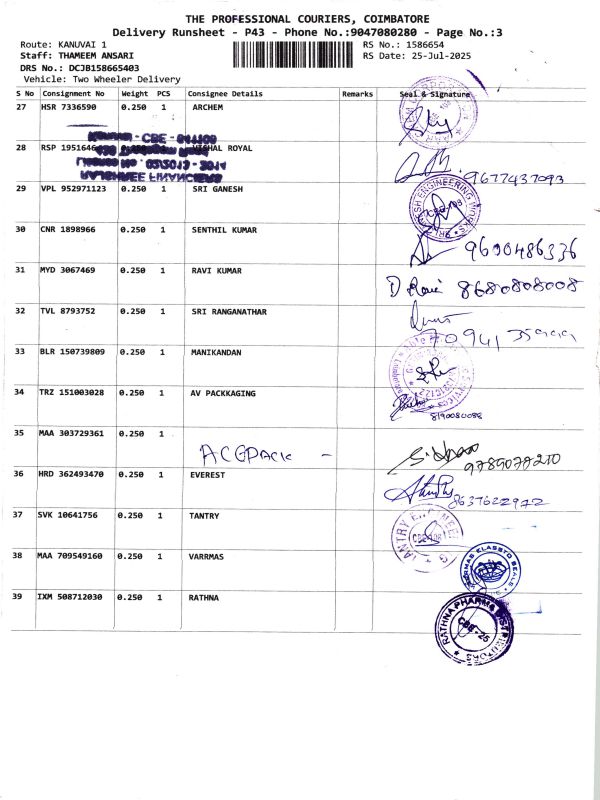 THE PROFESSIONAL COURIERS, COIMBATORE
Delivery Runsheet - P43 - Phone No.:9047080280 - Page No.:3
Route: KANUVAI 1
RS No.: 1586654
Staff: THAMEEM ANSARI
RS Date: 25-Jul-2025
DRS No.: DCJB158665403
Vehicle: Two Wheeler Delivery
S No Consignment No Weight PCS Consignee Details Remarks Seal & Signature
27 HSR 7336590 0.250 1 ARCHEM
28 RSP 1951646 ROYAL
9677437093
29 VPL 952971123 0.250 1 SRI GANESH
30 CNR 1898966 0.250 1 SENTHIL KUMAR
9600486336
31 MYD 3067469 0.250 1 RAVI KUMAR
8680808008
32 TVL 8793752 0.250 1 SRI RANGANATHAR
33 BLR 150739809 0.250 1 MANIKANDAN
34 TRZ 151003028 0.250 1 AV PACKKAGING
8190080088
35 MAA 303729361 0.250 1
ACGPACK -
36 HRD 362493470 0.250 1 EVEREST
37 SVK 10641756 0.250 1 TANTRY
38 MAA 709549160 0.250 1 VARRMAS
39 IXM 508712030 0.250 1 RATHNA
RATHNA PHARMA DISTRIBUTORS
CBE-25